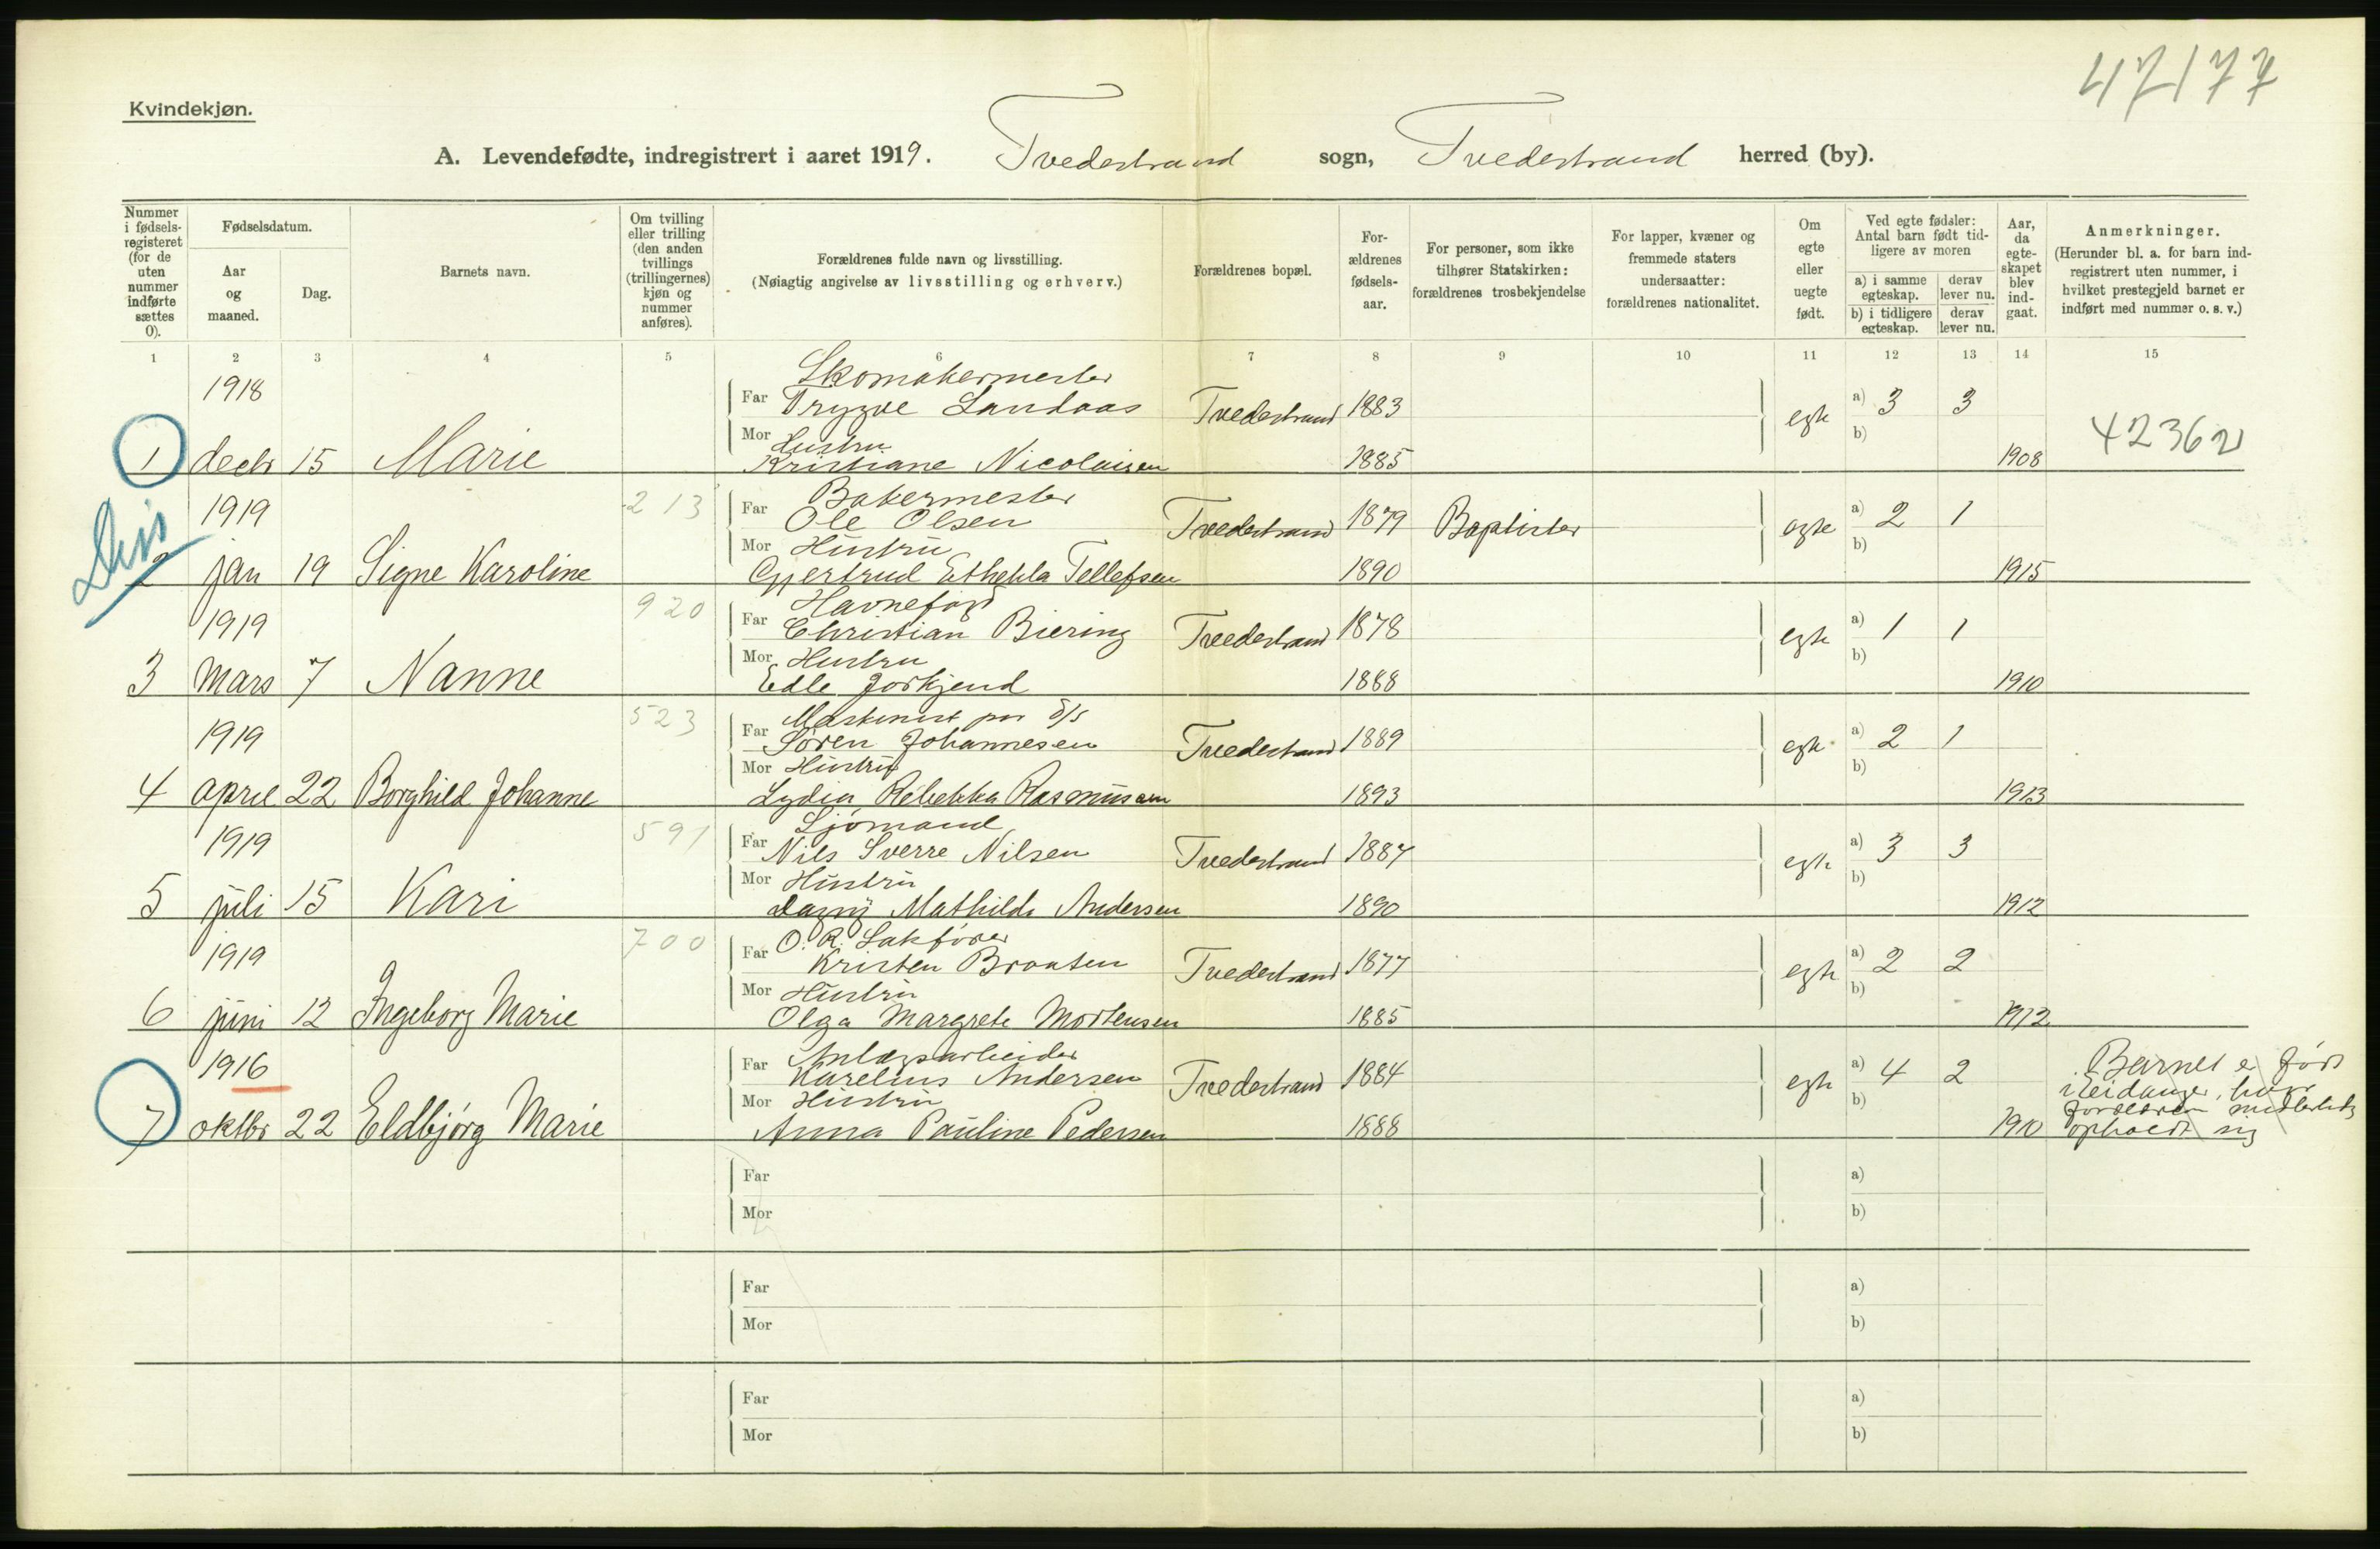 47177
Kvindekjøn.
A. Levendefødte, indregistrert i aaret 1919. Tvedestrand sogn, Tvedestrand herred (by).
Nummer i fødsels-registeret (for de uten nummer indførte sættes 0).
Fødselsdatum.
Aar og maaned.
Dag.
Barnets navn.
Om tvilling eller trilling (den anden tvillings (trillingernes) kjøn og nummer anføres).
Forældrenes fulde navn og livsstilling.
(Nøiagtig angivelse av livsstilling og erhverv.)
Forældrenes bopæl.
For-ældrenes fødsels-aar.
For personer, som ikke tilhører Statskirken: forældrenes trosbekjendelse
For lapper, kvæner og fremmede staters undersaatter: forældrenes nationalitet.
Om egte eller uegte født.
Ved egte fødsler: Antal barn født tid-ligere av moren
a) i samme egteskap.
derav lever nu.
b) i tidligere egteskap.
derav lever nu.
Aar, da egte-skapet blev ind-gaat.
Anmerkninger.
(Herunder bl. a. for barn ind-registrert uten nummer, i hvilket prestegjeld barnet er indført med nummer o. s. v.)
1 2 3 4 5 6 7 8 9 10 11 12 13 14 15
1918 Skomakermester
Far Trygve Landaas Tvedestrand 1883 egte a) 3 3
Mor Hustru b) 42362
1 decbr 15 Marie Kristiane Nicolaisen 1885 1908
Diss
1919 213 Bakermester
Far Ole Olsen Tvedestrand 1879 Baptister egte a) 2 1
Mor Hustru b)
2 jan 19 Signe Karoline Gjertrud Thekla Tellefsen 1890 1915
1919 920 Havnefogd
Far Christian Biering Tvedestrand 1878 egte a) 1 1
Mor Hustru b)
3 Mars 7 Nanne Edle Jorkjend 1888 1910
1919 523 Maskinist paa D/S
Far Søren Johannesen Tvedestrand 1889 egte a) 2 1
Mor Hustru b)
4 april 22 Borghild Johanne Lydia Rebekka Rasmussen 1893 1913
1919 591 Sjømand
Far Nils Sverre Nilsen Tvedestrand 1884 egte a) 3 3
Mor Hustru b)
5 juli 15 Kari Dagny Mathilde Andersen 1890 1912
1919 700 O. R. Sakfører
Far Kristen Braaten Tvedestrand 1877 egte a) 2 2
Mor Hustru b)
6 juni 12 Ingeborg Marie Olga Margrete Mortensen 1885 1912
1916 Anlægsarbeider
Far Karelius Andersen Tvedestrand 1884 egte a) 4 2
Mor Hustru b)
7 oktbr 22 Eldbjørg Marie Anna Pauline Pedersen 1888 1910
Barnet er født
i Eidanger, hvor
forældrene midlertidig
opholdt sig
Far a)
Mor b)
Far a)
Mor b)
Far a)
Mor b)